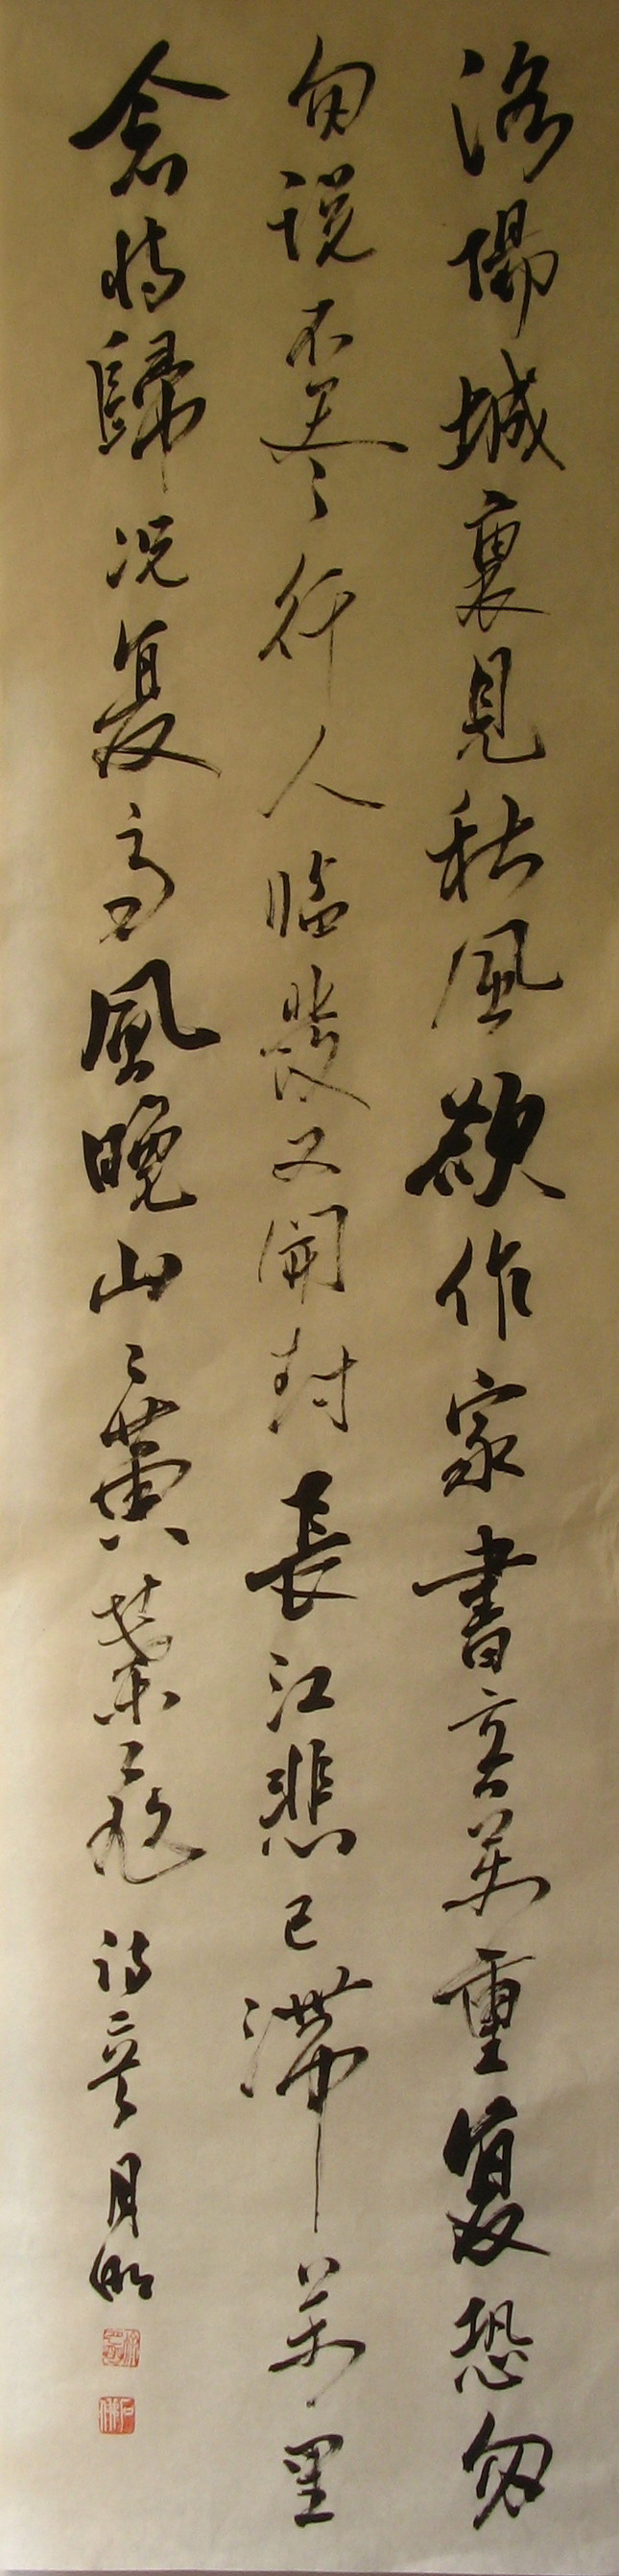 洛陽城裏見秋風欲作家書意萬重復恐匆
匆説不盡行人臨發又開封長江悲已滯萬里
念將歸況復高風晚山〻黃葉飛 詩意 月明